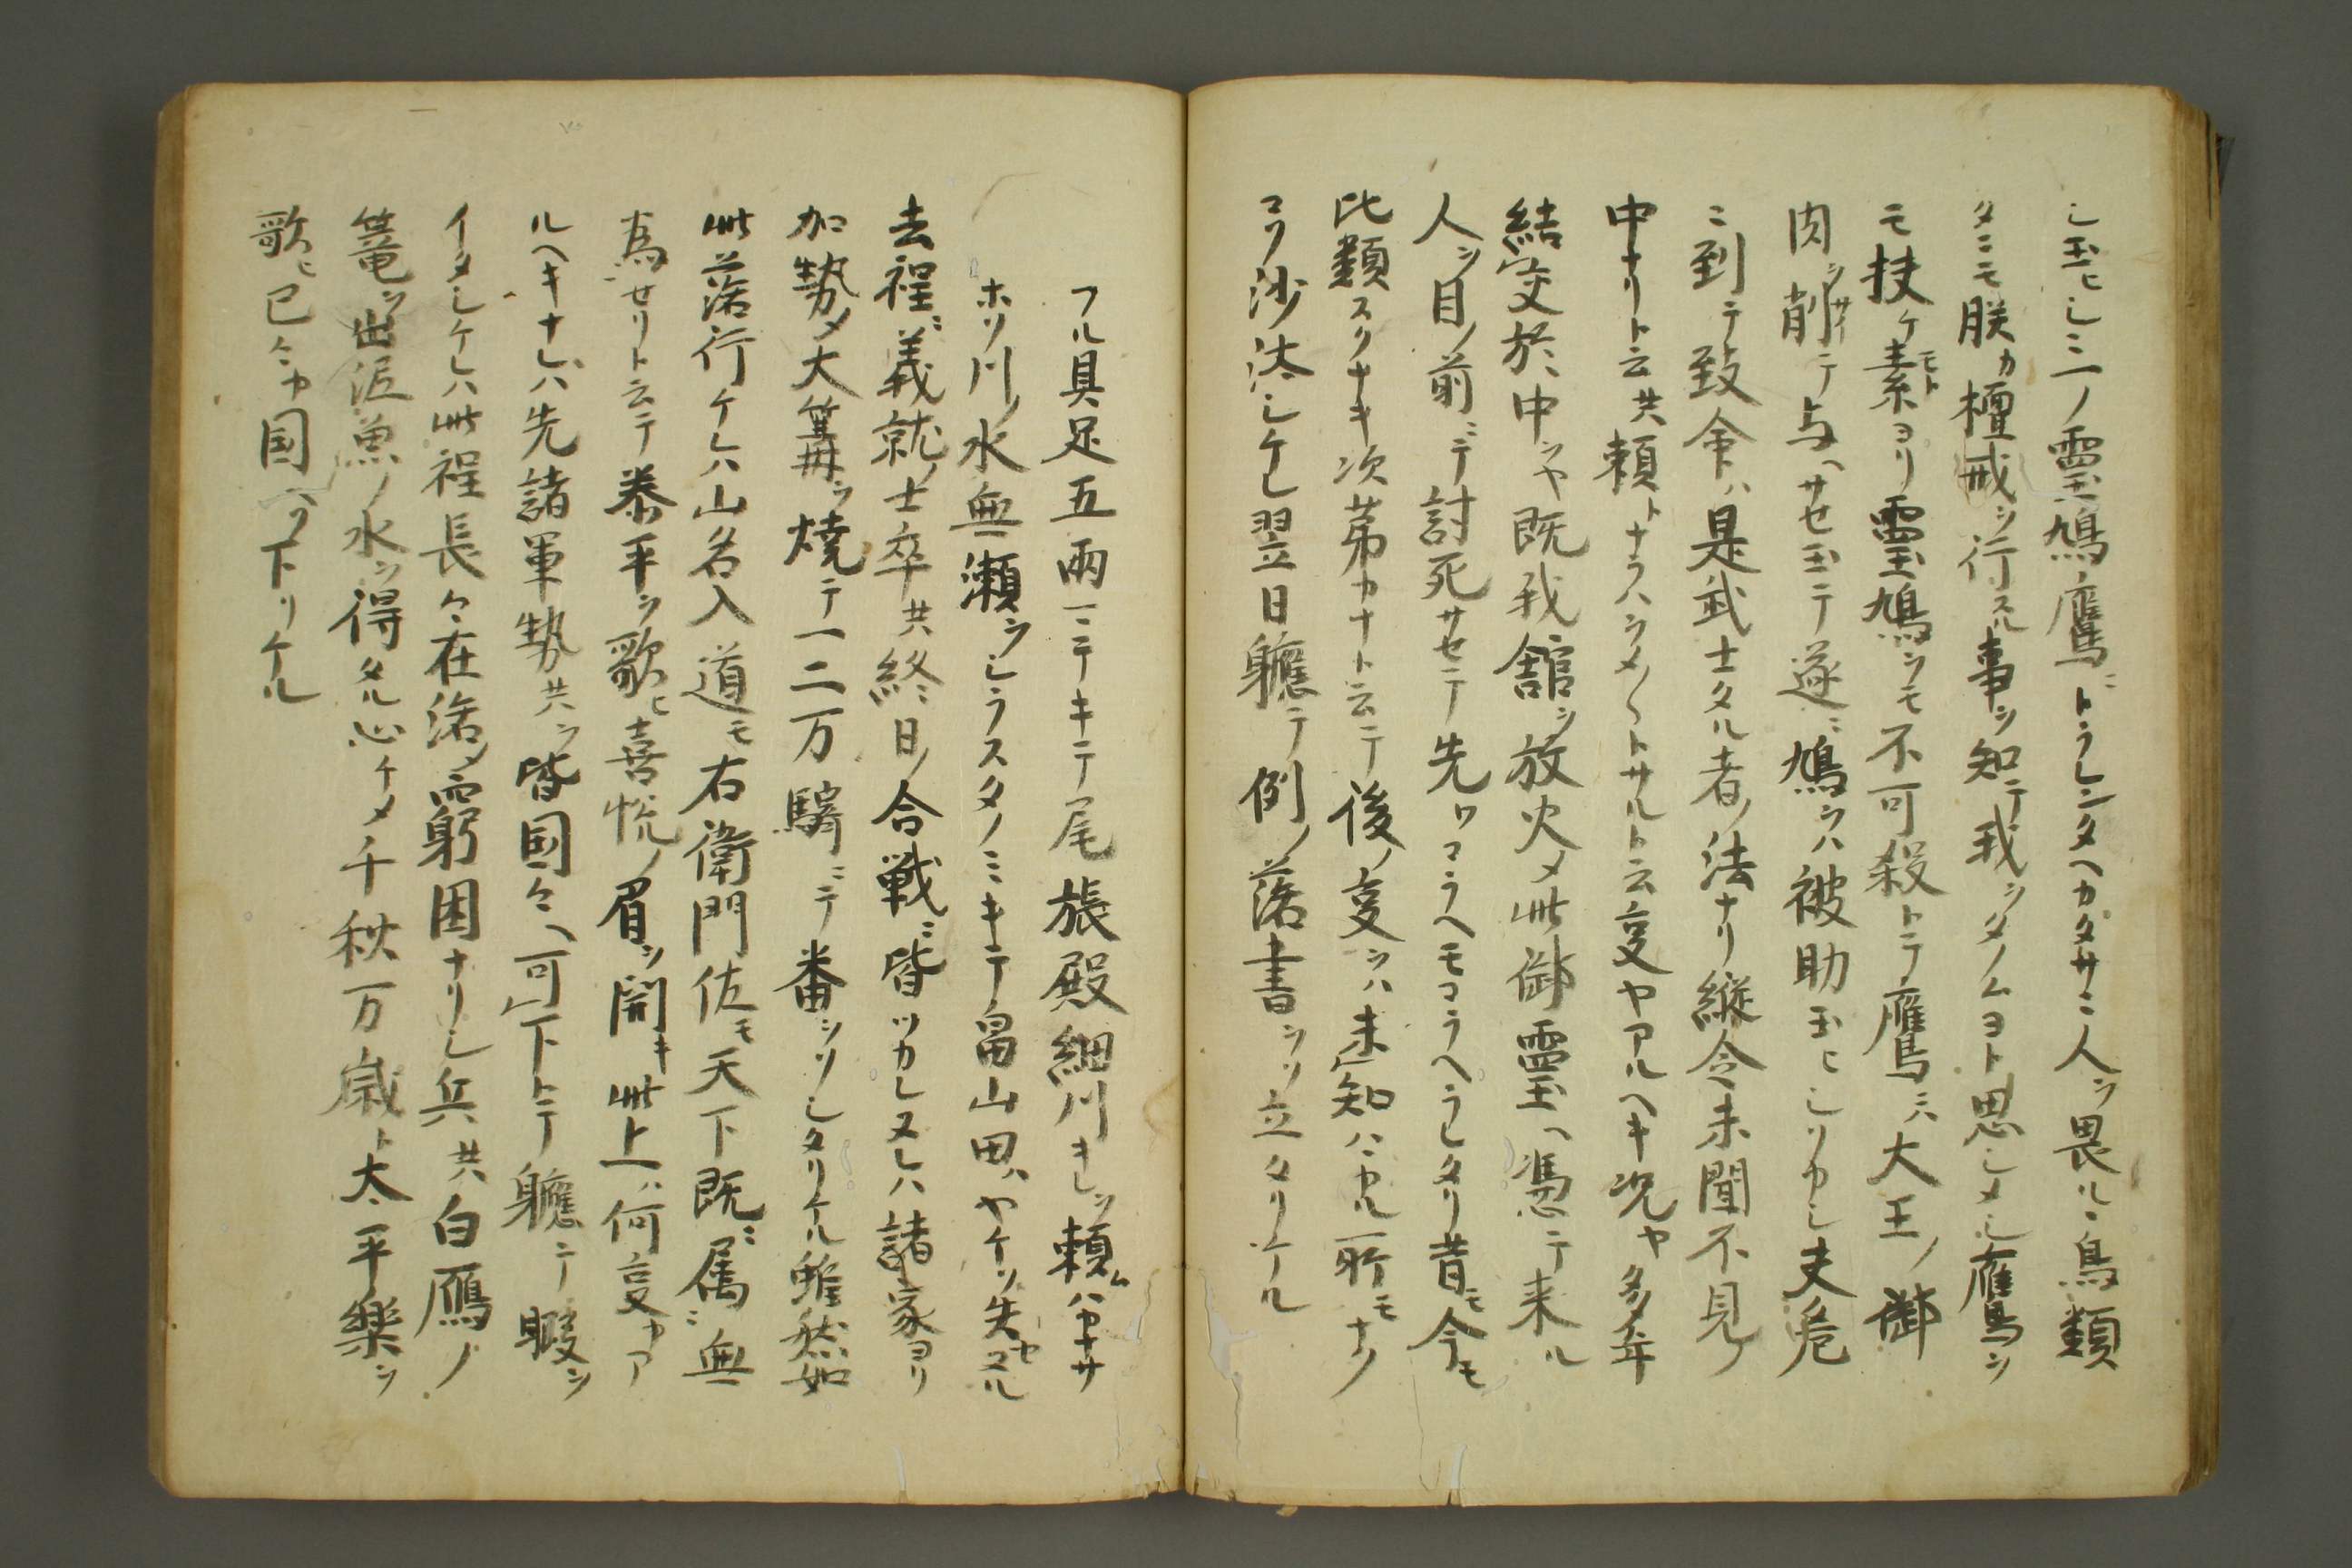 シ玉ヒシニ一ノ霊鳩鷹ニトラレンタヘカタサニ人ヲ畏ル鳥類
タニモ朕カ檀戒ヲ行スル事ヲ知テ我ヲタノムヨト思シメシ鷹ヲ
モ扶ケ素ヨリ霊鳩ヲモ不可殺トテ鷹ニハ大王ノ御
肉ヲ削テ与ヘサセ玉テ遂ニ鳩ヲハ被助玉ヒシソカシ夫危
ニ到テ致命ハ是武士タル者ノ法ナリ縦令未聞不見ノ
中ナリト云共頼トナラハシメ〱トサルト云事ヤアルヘキ况ヤ多年
結交於中ヲヤ既我舘ヲ放火メ此御霊ヘ馮テ来ル
人ヲ目ノ前ニテ討死サセテ先ワコラヘモコラヘラレタリ昔モ今モ
比類スクナキ次第カナト云テ後ノ事ヲハ未知ハヽカル所モナク
コソ沙汰シケレ翌日軈テ例ノ落書ヲソ立タリケル
フル具足五両ニテキテ尾張殿細川キレヲ頼ムハカナサ
ホソ川ノ水無瀬ヲシラスタノミキテ畠山田ハヤケソ失セヌル
去程ニ義就ノ士卒共終日ノ合戦ニ皆ツカレヌレハ諸家ヨリ
加勢メ大篝ヲ焼テ一二万騎ニテ番ヲソシタリケル雖然如
此落行ケレハ山名入道モ右衛門佐モ天下既ニ属ニ無
為セリト云テ泰平ヲ歌ヒ喜悦ノ眉ヲ開キ此上ハ何事カア
ルヘキナレハ先諸軍勢共ヲ皆国々ヘ可下トテ軈テ暇ヲ
イタシケレハ此程長々在洛メ窮困ナリシ兵共白鴈ノ
篭ヲ出泥魚ノ水ヲ得タル心チメ千秋万歳ト太平樂ヲ
歌ヒ已カ国ヘソ下リケル